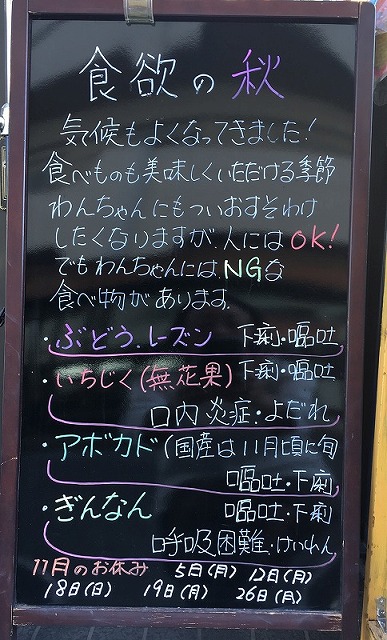 食欲の秋
気候もよくなってきました!
食べものも美味しくいただける季節
わんちゃんにもついおすそわけ
したくなりますが、人にはOK!
でもわんちゃんには、NGな
食べ物があります。
・ぶどう、レーズン 下痢・嘔吐
・いちじく(無花果) 下痢・嘔吐
口内炎症・よだれ
・アボカド(国産は11月頃に旬
嘔吐・下痢
・ぎんなん 嘔吐・下痢
呼吸困難・けいれん
11月のお休み 5日(月) 12日(月)
18日(日) 19日(月) 26日(月)